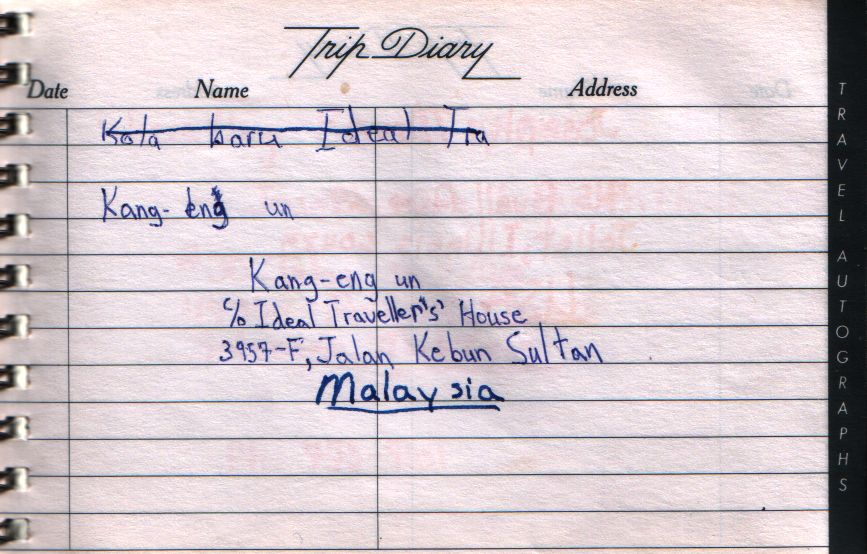 Trip Diary
Date Name Address
Kota baru Ideal Tra
Kang-eng un
Kang-eng un
c/o Ideal Traveller's' House
3957-F, Jalan Kebun Sultan
Malaysia
TRAVEL AUTOGRAPHS